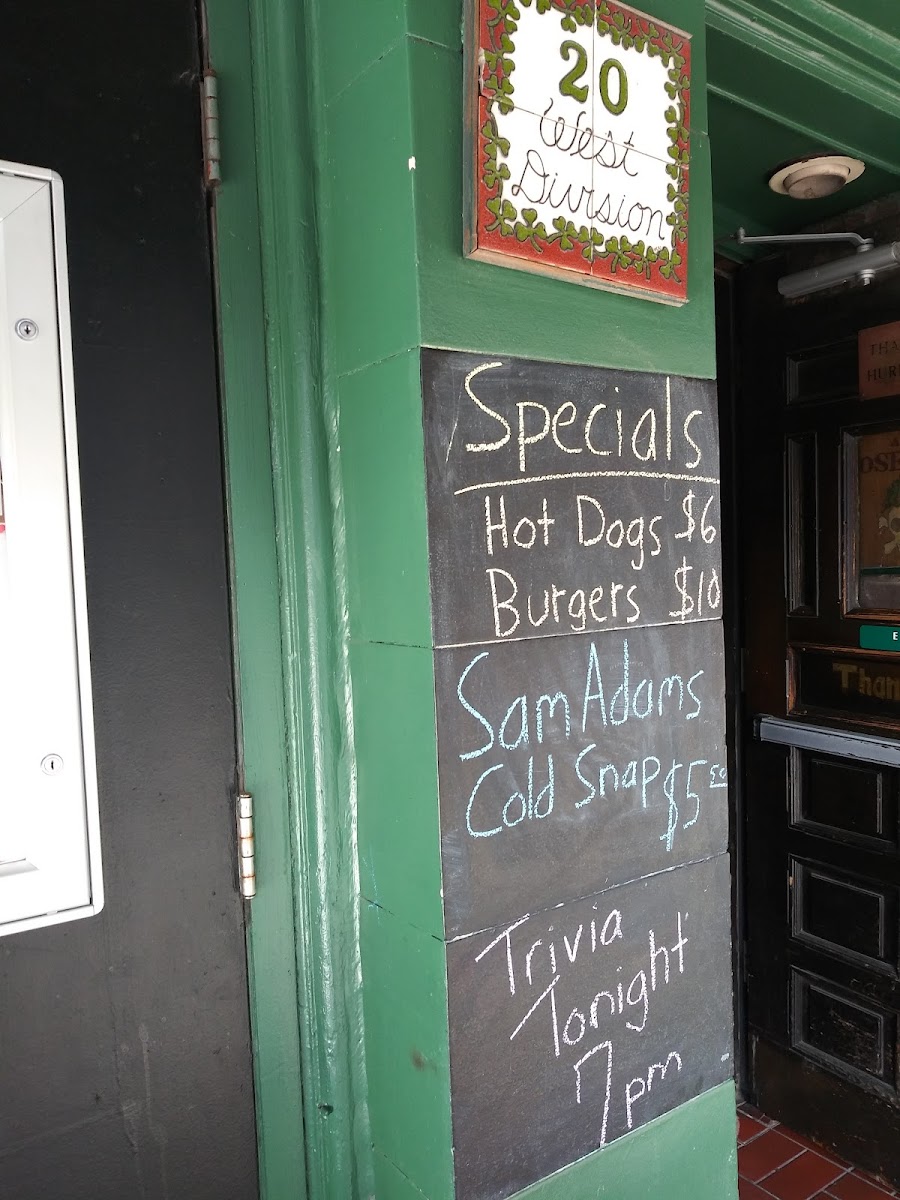 20
West
Division
Specials
Hot Dogs $6
Burgers $10
Sam Adams
Cold Snap $5 50
Trivia
Tonight
7pm